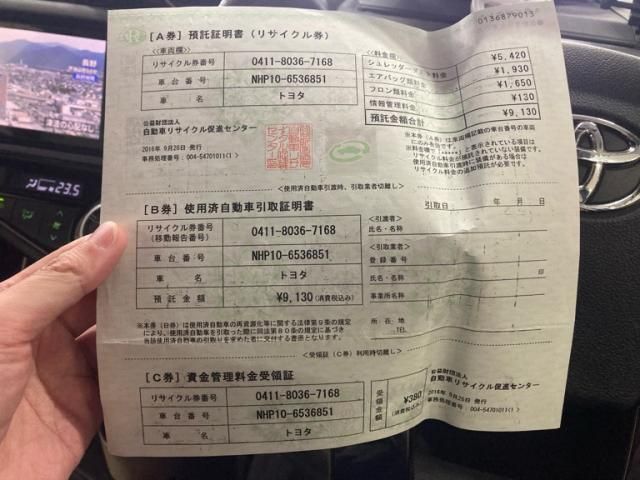 0136879013
[A券] 預託証明書 (リサイクル券)
<車両欄>
リサイクル券番号 0411-8036-7168
車台番号 NHP10-6536851
車名 トヨタ
<料金欄>
シュレッダーダスト料金 ¥5,420
エアバッグ類料金 ¥1,930
フロン類料金 ¥1,650
情報管理料金 ¥130
預託金額合計 ¥9,130
公益財団法人
自動車リサイクル促進センター
2016年 9月26日 発行
事務処理番号:004-54701011(1)
※本券(A券)は車両欄記載の車台番号の車両
にのみ有効です。
されている項目は
リサイクル料金が預託されていない装備です。
使用済自動車引渡時に装備がある場合は
リサイクル料金の追加預託が必要です。
<使用済自動車引渡時、引取業者切離し>
[B券] 使用済自動車引取証明書
リサイクル券番号
(移動報告番号) 0411-8036-7168
車台番号 NHP10-6536851
車名 トヨタ
預託金額 ¥9,130 (消費税込み)
引取日 年 月 日
<引渡者>
氏名・名称
<引取業者>
登録番号
氏名・名称 印
事業所名
所在地
TEL
※本券(B券)は使用済自動車の再資源化等に関する法律第9条の規定
により、使用済自動車を引取った際に同法第80条の規定に基づき
当該使用済自動車の引取りを求めた者に交付する書面となります。
<受領証(C券)利用時切離し>
[C券] 資金管理料金受領証
リサイクル券番号 0411-8036-7168
車台番号 NHP10-6536851
車名 トヨタ
受領金額 ¥380
(消費税込み)
公益財団法人
自動車リサイクル促進センター
2016年 9月26日 発行
事務処理番号:004-54701011(1)
長野
津波の心配なし
23.5